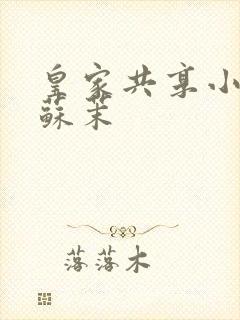 皇家共享小
蘇茉
落落木